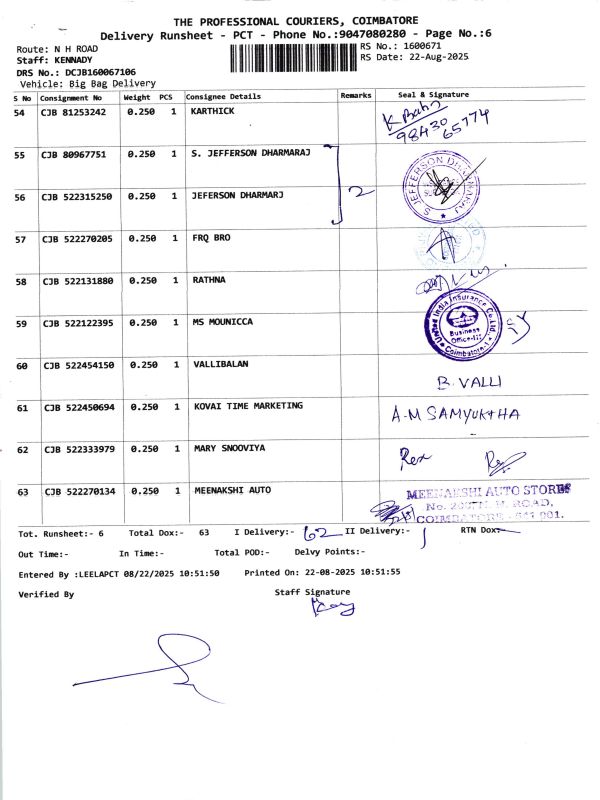 THE PROFESSIONAL COURIERS, COIMBATORE
Delivery Runsheet - PCT - Phone No.:9047080280 - Page No.:6
Route: N H ROAD
RS No.: 1600671
Staff: KENNADY
RS Date: 22-Aug-2025
DRS No.: DCJB160067106
Vehicle: Big Bag Delivery
S No Consignment No Weight PCS Consignee Details Remarks Seal & Signature
54 CJB 81253242 0.250 1 KARTHICK
98430 65774
55 CJB 80967751 0.250 1 S. JEFFERSON DHARMARAJ
S. JEFFERSON DHARMARAJ
56 CJB 522315250 0.250 1 JEFERSON DHARMARJ 2
57 CJB 522270205 0.250 1 FRQ BRO
58 CJB 522131880 0.250 1 RATHNA
59 CJB 522122395 0.250 1 MS MOUNICCA
United India Insurance Co.Ltd.
Business
Office-III
Coimbatore-1
60 CJB 522454150 0.250 1 VALLIBALAN
B. VALLI
61 CJB 522450694 0.250 1 KOVAI TIME MARKETING A-M SAMYUKTHA
62 CJB 522333979 0.250 1 MARY SNOOVIYA Rex
63 CJB 522270134 0.250 1 MEENAKSHI AUTO
MEENAKSHI AUTO STORES
No. N. H. ROAD,
COIMBATORE - 641 001.
Tot. Runsheet:- 6 Total Dox:- 63 I Delivery:- 62 II Delivery:- 1 RTN Dox:-
Out Time:- In Time:- Total POD:- Delvy Points:-
Entered By :LEELAPCT 08/22/2025 10:51:50 Printed On: 22-08-2025 10:51:55
Verified By Staff Signature